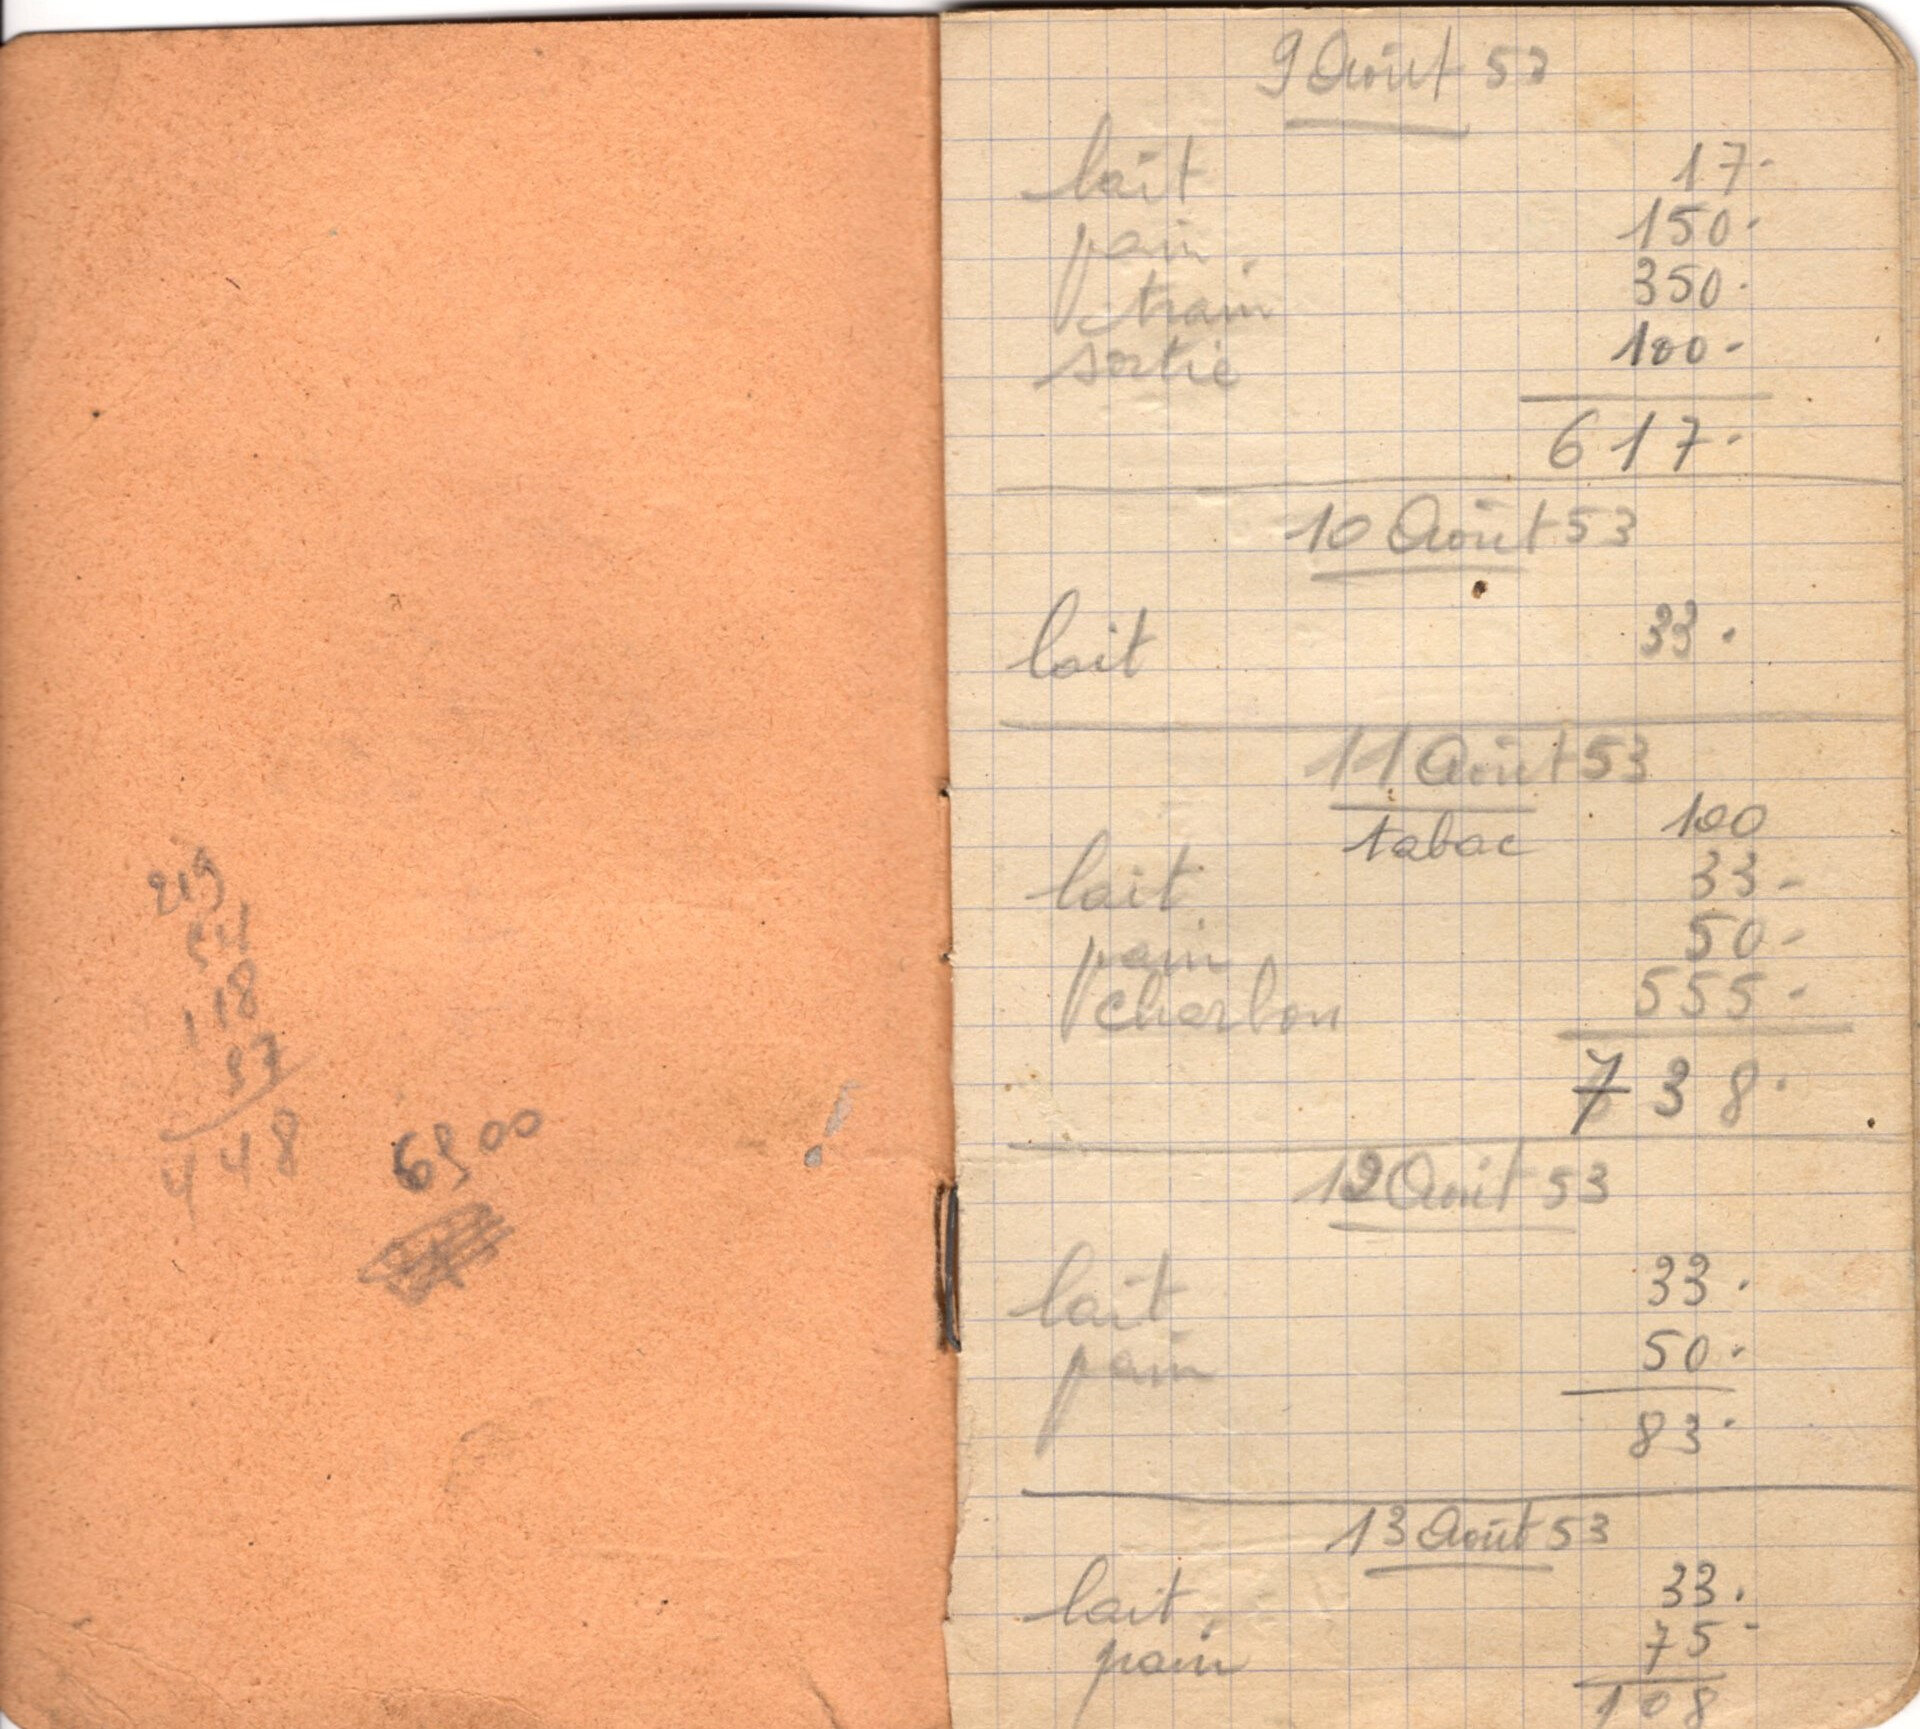 219
54
118
57
448
6900
9 Août 53
lait 17-
pain 150-
train 350-
sortie 100-
617-
10 Août 53
lait 33-
11 Août 53
tabac 100
lait 33-
pain 50-
charbon 555-
738-
12 Août 53
lait 33-
pain 50-
83-
13 Août 53
lait 33-
pain 75-
108